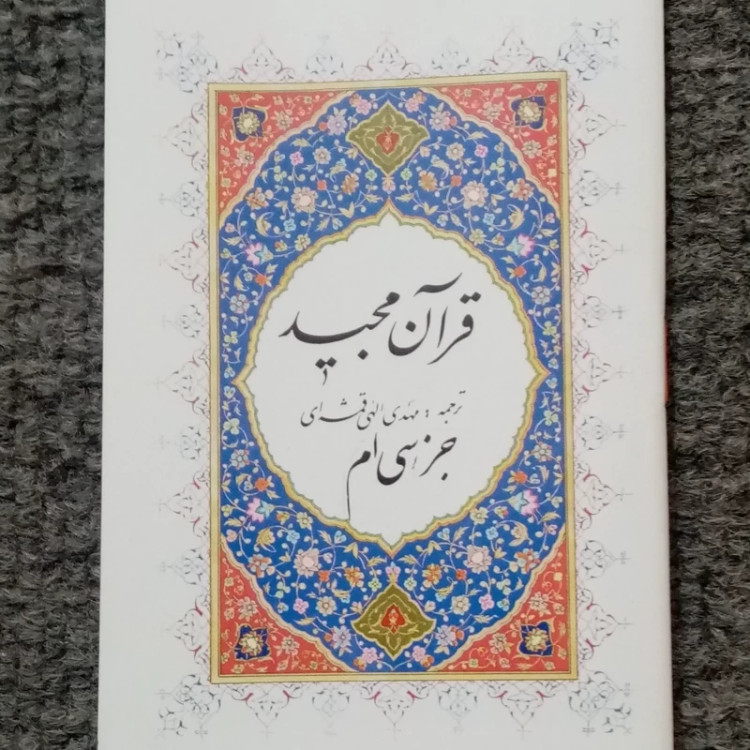 قرآن مجید
ترجمه : مهدی الهی قمشه‌ای
جز سی ام